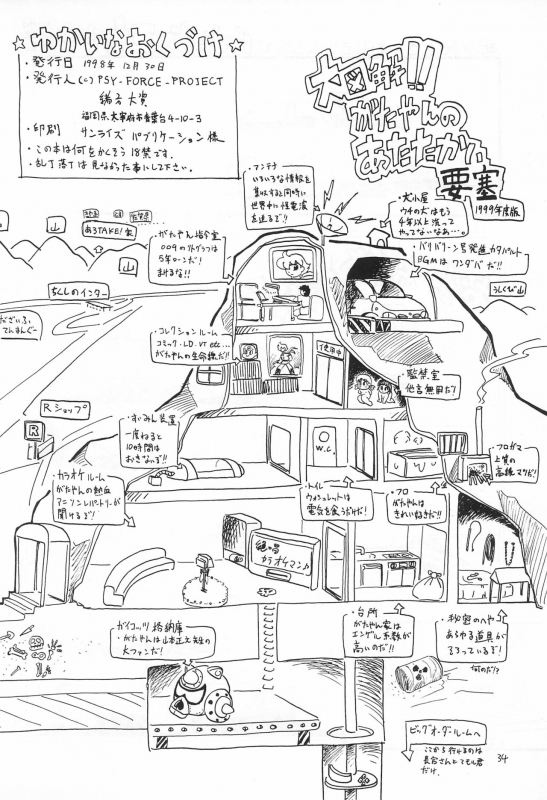 ☆ ゆかいなおくづけ ☆
・発行日 1998年12月30日
・発行人 (c) PSY-FORCE-PROJECT
緒方大賀
福岡県太宰府市青葉台4-10-3
・印刷 サンライズパブリケーション様
・この本は何をかくそう18禁です。
・乱丁落丁は見なかった事にして下さい。
大図解!!
がたやんの
あたたかい
要塞
1999年度版
・アンテナ
いろいろな情報を
集収すると同時に
世界中に怪電波
を送るぞ!!
・犬小屋
ウチの犬はもう
4年以上洗って
やってないなあ…。
・がたやん指令室
009のソトグラフは
5年ローンだ!
まけるな!!
・バリバリーン号発進カタパルト
BGMはワンダバだ!!
あるTAKE!家
山
山
山
ちくしのインター
うしくび山
だざいふ
てんまんぐー
・コレクションルーム
コミック・LD・VT etc…
がたやんの生命線だ!!
使用中
・監禁室
他言無用だ!
Rショップ
R
・すいみん装置
一度ねると
10時間は
おきないぞ!!
W.C.
・フロガマ
上質の
高級マキだ!
・カラオケルーム
がたやんの熱血
アニソンレパートリーが
聞けるぞ!
・トイレ
ウォシュレットは
電気を食うだけだ!
・フロ
がたやんは
きれい好きだ!!
カラオケマン♪
・ガイコッツ格納庫
・がたやんは山本正之先生の
大ファンだ!
・台所
がたやん家は
エンゲル係数が
高いのだ!!
・秘密のへや
あらゆる道具が
そろっているぞ!
何のだ!?
ビッグオーダールームへ
ここから行けるのは
長谷さんとてもル君
だけ。
34